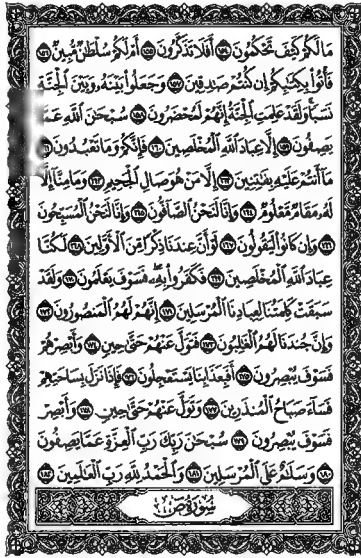 مَا لَكُمْ كَيْفَ تَحْكُمُونَ ١٥٤ أَفَلَا تَذَكَّرُونَ ١٥٥ أَمْ لَكُمْ سُلْطَانٌ مُبِينٌ ١٥٦
فَأْتُوا بِكِتَابِكُمْ إِن كُنتُمْ صَادِقِينَ ١٥٧ وَجَعَلُوا بَيْنَهُ وَبَيْنَ الْجِنَّةِ
نَسَبًا وَلَقَدْ عَلِمَتِ الْجِنَّةُ إِنَّهُمْ لَمُحْضَرُونَ ١٥٨ سُبْحَانَ اللَّهِ عَمَّا
يَصِفُونَ ١٥٩ إِلَّا عِبَادَ اللَّهِ الْمُخْلَصِينَ ١٦٠ فَإِنَّكُمْ وَمَا تَعْبُدُونَ ١٦١
مَا أَنتُمْ عَلَيْهِ بِفَاتِنِينَ ١٦٢ إِلَّا مَنْ هُوَ صَالِ الْجَحِيمِ ١٦٣ وَمَا مِنَّا إِلَّا
لَهُ مَقَامٌ مَعْلُومٌ ١٦٤ وَإِنَّا لَنَحْنُ الصَّافُّونَ ١٦٥ وَإِنَّا لَنَحْنُ الْمُسَبِّحُونَ
١٦٦ وَإِن كَانُوا لَيَقُولُونَ ١٦٧ لَوْ أَنَّ عِندَنَا ذِكْرًا مِنَ الْأَوَّلِينَ ١٦٨ لَكُنَّا
عِبَادَ اللَّهِ الْمُخْلَصِينَ ١٦٩ فَكَفَرُوا بِهِ فَسَوْفَ يَعْلَمُونَ ١٧٠ وَلَقَدْ
سَبَقَتْ كَلِمَتُنَا لِعِبَادِنَا الْمُرْسَلِينَ ١٧١ إِنَّهُمْ لَهُمُ الْمَنصُورُونَ ١٧٢
وَإِنَّ جُندَنَا لَهُمُ الْغَالِبُونَ ١٧٣ فَتَوَلَّ عَنْهُمْ حَتَّى حِينٍ ١٧٤ وَأَبْصِرْهُمْ
فَسَوْفَ يُبْصِرُونَ ١٧٥ أَفَبِعَذَابِنَا يَسْتَعْجِلُونَ ١٧٦ فَإِذَا نَزَلَ بِسَاحَتِهِمْ
فَسَاءَ صَبَاحُ الْمُنذَرِينَ ١٧٧ وَتَوَلَّ عَنْهُمْ حَتَّى حِينٍ ١٧٨ وَأَبْصِرْ
فَسَوْفَ يُبْصِرُونَ ١٧٩ سُبْحَانَ رَبِّكَ رَبِّ الْعِزَّةِ عَمَّا يَصِفُونَ
١٨٠ وَسَلَامٌ عَلَى الْمُرْسَلِينَ ١٨١ وَالْحَمْدُ لِلَّهِ رَبِّ الْعَالَمِينَ ١٨٢
سُورَةُ ص